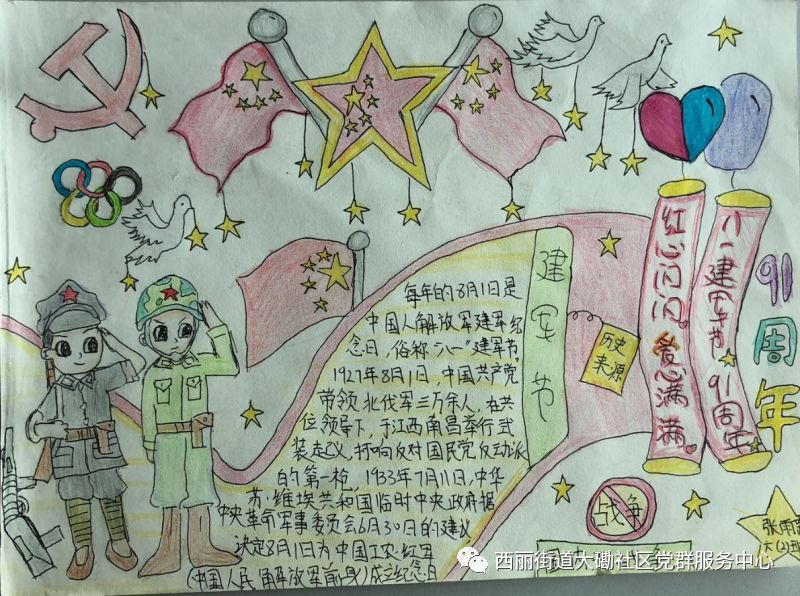 每年的8月1日是
中国人解放军建军纪
念日，俗称“八一”建军节。
1927年8月1日，中国共产党
带领北伐军三万余人，在共
位领导下，于江西南昌举行武
装走义，打响反对国民党反动派
的第一枪，1933年7月11日，中华
苏·维埃共和国临时中央政府据
中央革命军事委员会6月30日的建议
决定8月1日为中国工农红军
(中国人民解放军前身)成立纪念日
建军节
历史
来源
红心闪闪。爱心满满。
八一建军节91周年
91周年
战争
张雨
六(2)班
西丽街道大磡社区党群服务中心